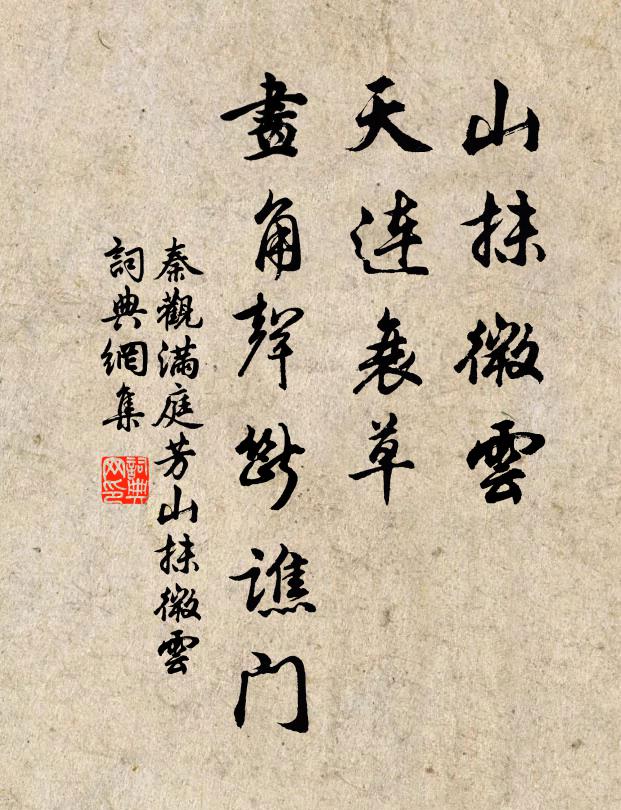 山抹微雲
天连衰草
畫角聲斷譙門
秦觀滿庭芳山抹微雲
詞典網集
詞典網印